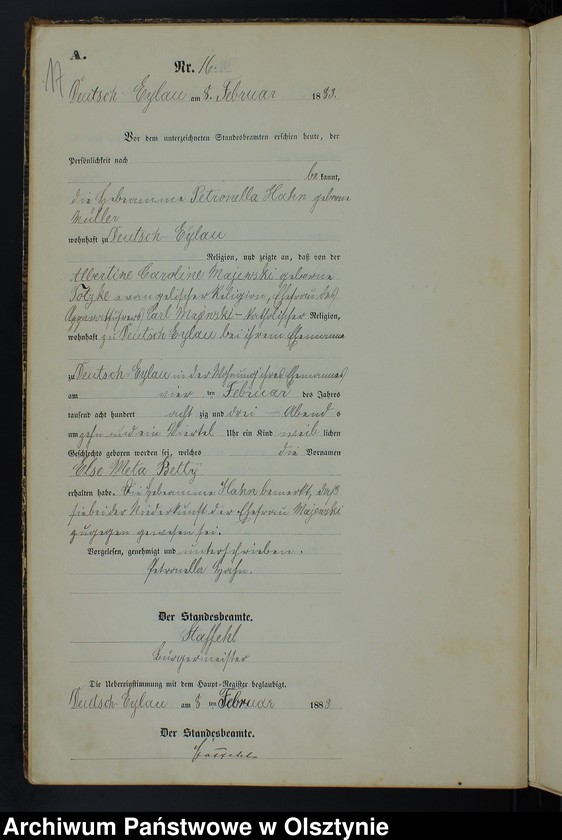 A.
17
Nr. 16.
Deutsch-Eylau am 8. Februar 1883.
Vor dem unterzeichneten Standesbeamten erschien heute, der
Persönlichkeit nach
be kannt,
die Hebeamme Petronella Hahn geborene
Müller
wohnhaft zu Deutsch-Eylau
Religion, und zeigte an, daß von der
Albertine Caroline Majewski geborne
Totzke evangelischer Religion, Ehefrau des
Carl Majewski - katholischer Religion,
wohnhaft zu Deutsch Eylau bei ihrem Ehemanne
zu Deutsch-Eylau in der Wohnung ihres Ehemannes
am vier ten Februar des Jahres
tausend acht hundert acht zig und drei - Abends
um zehn und ein Viertel Uhr ein Kind weib lichen
Geschlechts geboren worden sei, welches die Vornamen
Else Meta Betty
erhalten habe. Die Hebeamme Hahn bemerkt, daß
sie bei der Niederkunft der Ehefrau Majewski
zugegen gewesen sei.
Vorgelesen, genehmigt und unterschrieben.
Petronella Hahn.
Der Standesbeamte.
Staffehl
Bürgermeister
Die Uebereinstimmung mit dem Haupt-Register beglaubigt.
Deutsch-Eylau am 8 ten Februar 1883
Der Standesbeamte.
Staffehl
Archiwum Państwowe w Olsztynie